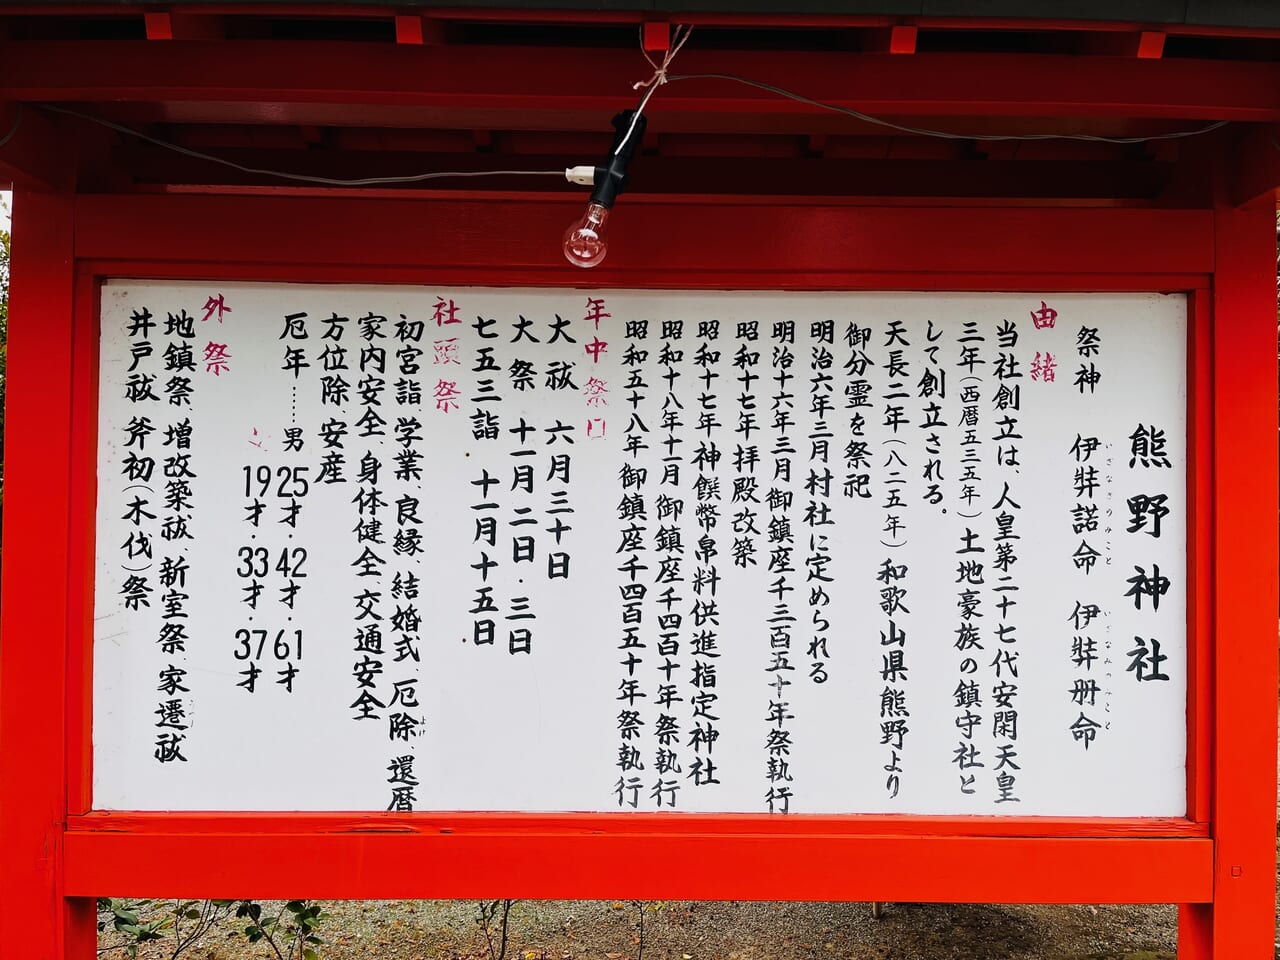 熊野神社
祭神　伊弉諾命　伊弉册命
いざなぎのみこと　いざなみのみこと
由緒
当社創立は、人皇第二十七代安閑天皇
三年（西暦五三五年）土地豪族の鎮守社と
して創立される。
天長二年（八二五年）和歌山県熊野より
御分霊を祭祀
明治六年三月村社に定められる
明治十六年三月御鎮座千三百五十年祭執行
昭和十七年拝殿改築
昭和十七年神饌幣帛料供進指定神社
昭和十八年十一月御鎮座千四百十年祭執行
昭和五十八年御鎮座千四百五十年祭執行
年中祭日
大祓　六月三十日
大祭　十一月二日・三日
七五三詣　十一月十五日
社頭祭
初宮詣、学業、良縁、結婚式、厄除、還暦
よけ
家内安全、身体健全、交通安全
方位除、安産
厄年……男25才・42才・61才
女19才・33才・37才
外祭
地鎮祭、増改築祓、新室祭、家遷祓
井戸祓、斧初（木伐）祭